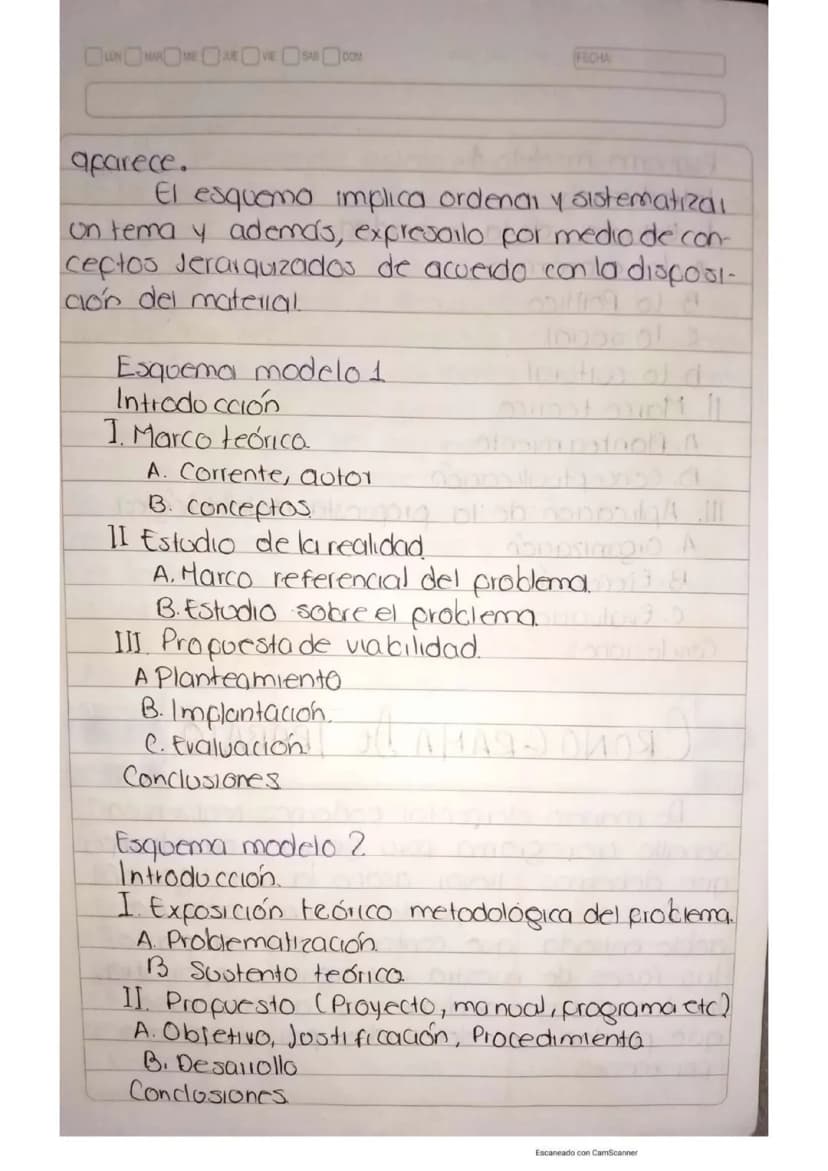 LUN MAR MIE JUE VIE SAB DOM FECHA
aparece.
El esquema implica ordenar y sistematizar
un tema y además, expresarlo por medio de con-
ceptos Jerarquizados de acuerdo con la disposi-
ción del material.
Esquema modelo 1
Introducción
I. Marco teórico.
A. Corriente, autor
B. conceptos.
II Estudio de la realidad.
A. Marco referencial del problema.
B. Estudio sobre el problema.
III. Propuesta de viabilidad.
A Planteamiento
B. Implantación.
C. Evaluación.
Conclusiones
Esquema modelo 2
Introducción.
I. Exposición teórico metodológica del problema.
A. Problematización.
B Sustento teórico.
II. Propuesto (Proyecto, manual, programa etc)
A. Objetivo, Justificación, Procedimiento
B. Desarrollo
Conclusiones
Escaneado con CamScanner